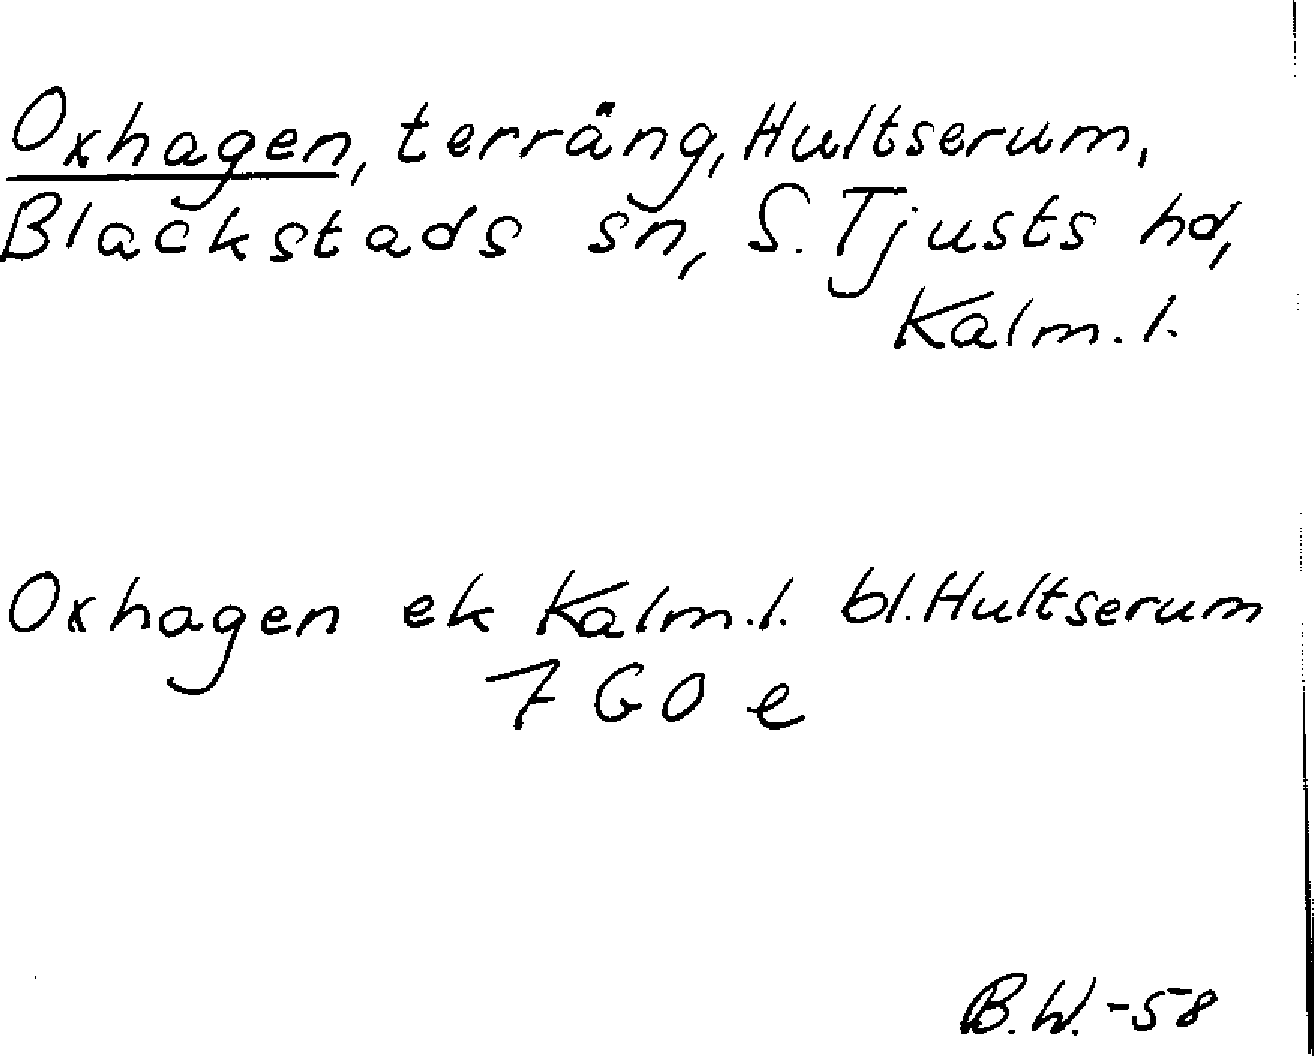 Oxhagen, terräng, Hultserum,
Blackstads sn, S. Tjusts hd,
Kalm. l.
Oxhagen ek Kalm. l. bl. Hultserum
7 G O e
B.W.-58